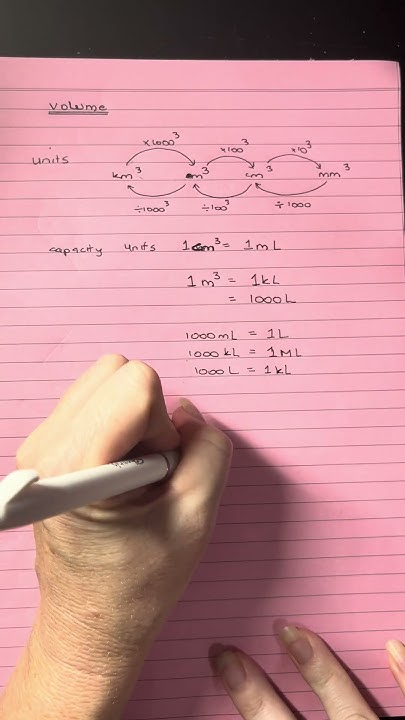 volume
×1000³ ×100³ ×10³
units km³ m³ cm³ mm³
÷1000³ ÷100³ ÷1000
capacity units 1cm³ = 1mL
1m³ = 1kL
= 1000L
1000mL = 1L
1000kL = 1ML
1000L = 1kL